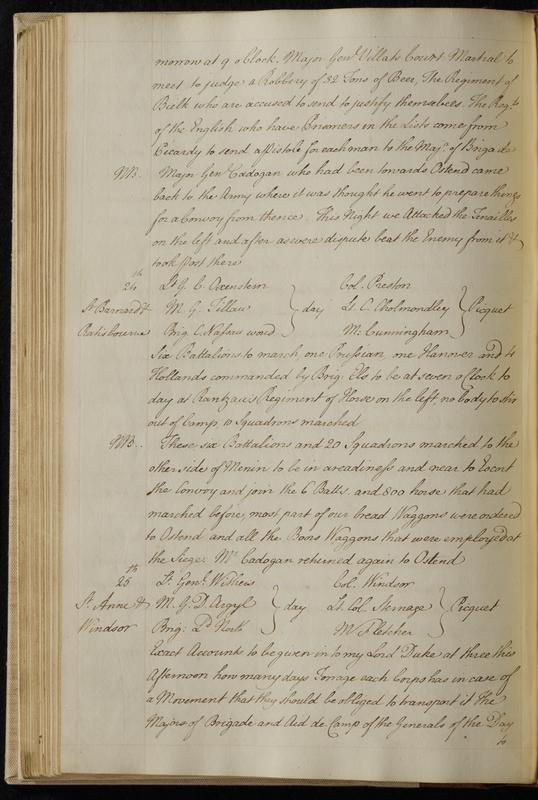 morrow at 9 o Clock. Major Genl. Villats Court Martial to
meet to judge a Robbery of 32 Tons of Beer, The Regiment of
Bulk who are accused to send to justify themselves. The Regts.
of the English who have Prisoners in the Lists come from
Picardy to send a Pistole for each man to the Majr. of Brigade
NB. Major Genl. Cadogan who had been towards Ostend came
back to the Army where it was thought he went to prepare things
for a Convoy from thence. This Night we Attacked the Tenailles
on the left and after a severe dispute beat the Enemy from it &
took Post there
24th Lt. G. C. Oxenstern Col. Preston
St. Barnard & M. G. Tillaw } day Lt. C. Cholmondley } Picquet
Ratisbourne Brig. C. Nassau word M: Cunningham
Six Battalions to march, one Prussian, one Hanover and 4
Hollands commanded by Brig. Els to be at seven a Clock to
day at Rantzau's Regiment of Horse on the left, no body to stir
out of Camp 10 Squadrons marched
NB. These six Battalions and 20 Squadrons marched to the
other side of Menin to be in a readiness and near to Escort
the Convoy and join the 6 Batts. and 800 horse that had
marched before, most part of our bread Waggons were ordered
to Ostend and all the Bons Waggons that were employed at
the Siege. Mr. Cadogan returned again to Ostend
25th Lt. Genl. Withers Col. Windsor
St. Anne & M. G. D. Argyl } day Lt. Col. Sernage } Picquet
Windsor Brig: Ld. North M. Pletcher
Exact Accounts to be given in to my Lord Duke at three this
Afternoon how many days Forrage each Corps has in case of
a Movement that they should be obliged to transport it The
Majors of Brigade and Aid de Camp of the Generals of the Day
to